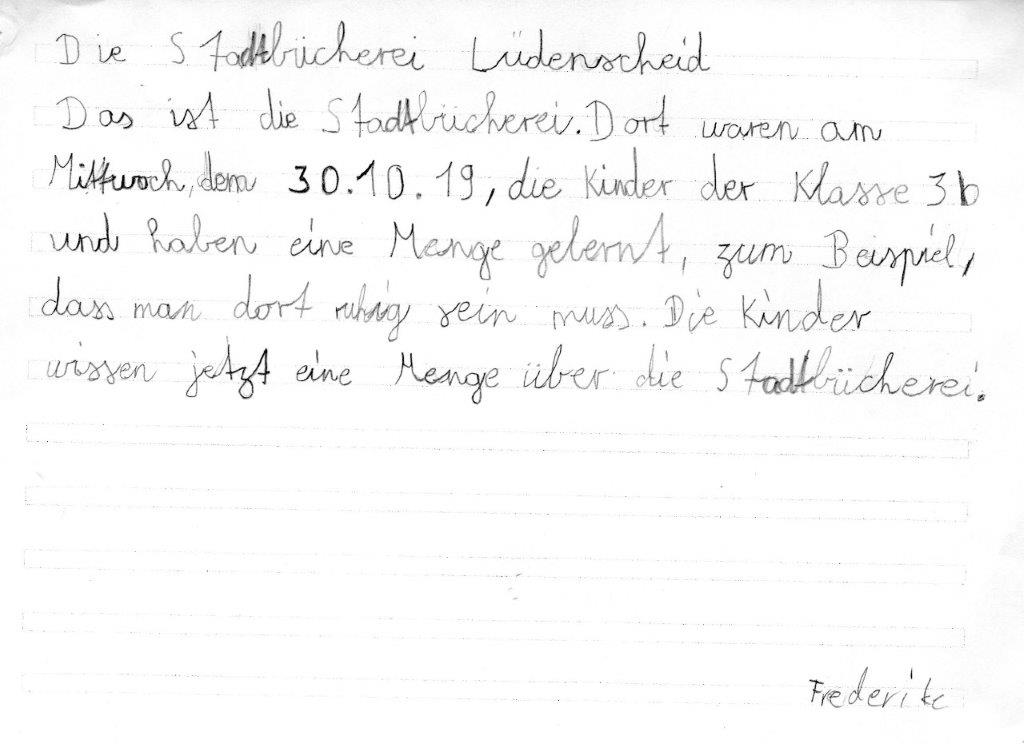 Die Stadtbücherei Lüdenscheid
Das ist die Stadtbücherei. Dort waren am
Mittwoch, dem 30.10.19, die Kinder der Klasse 3b
und haben eine Menge gelernt, zum Beispiel,
dass man dort ruhig sein muss. Die Kinder
wissen jetzt eine Menge über die Stadtbücherei.
Frederike